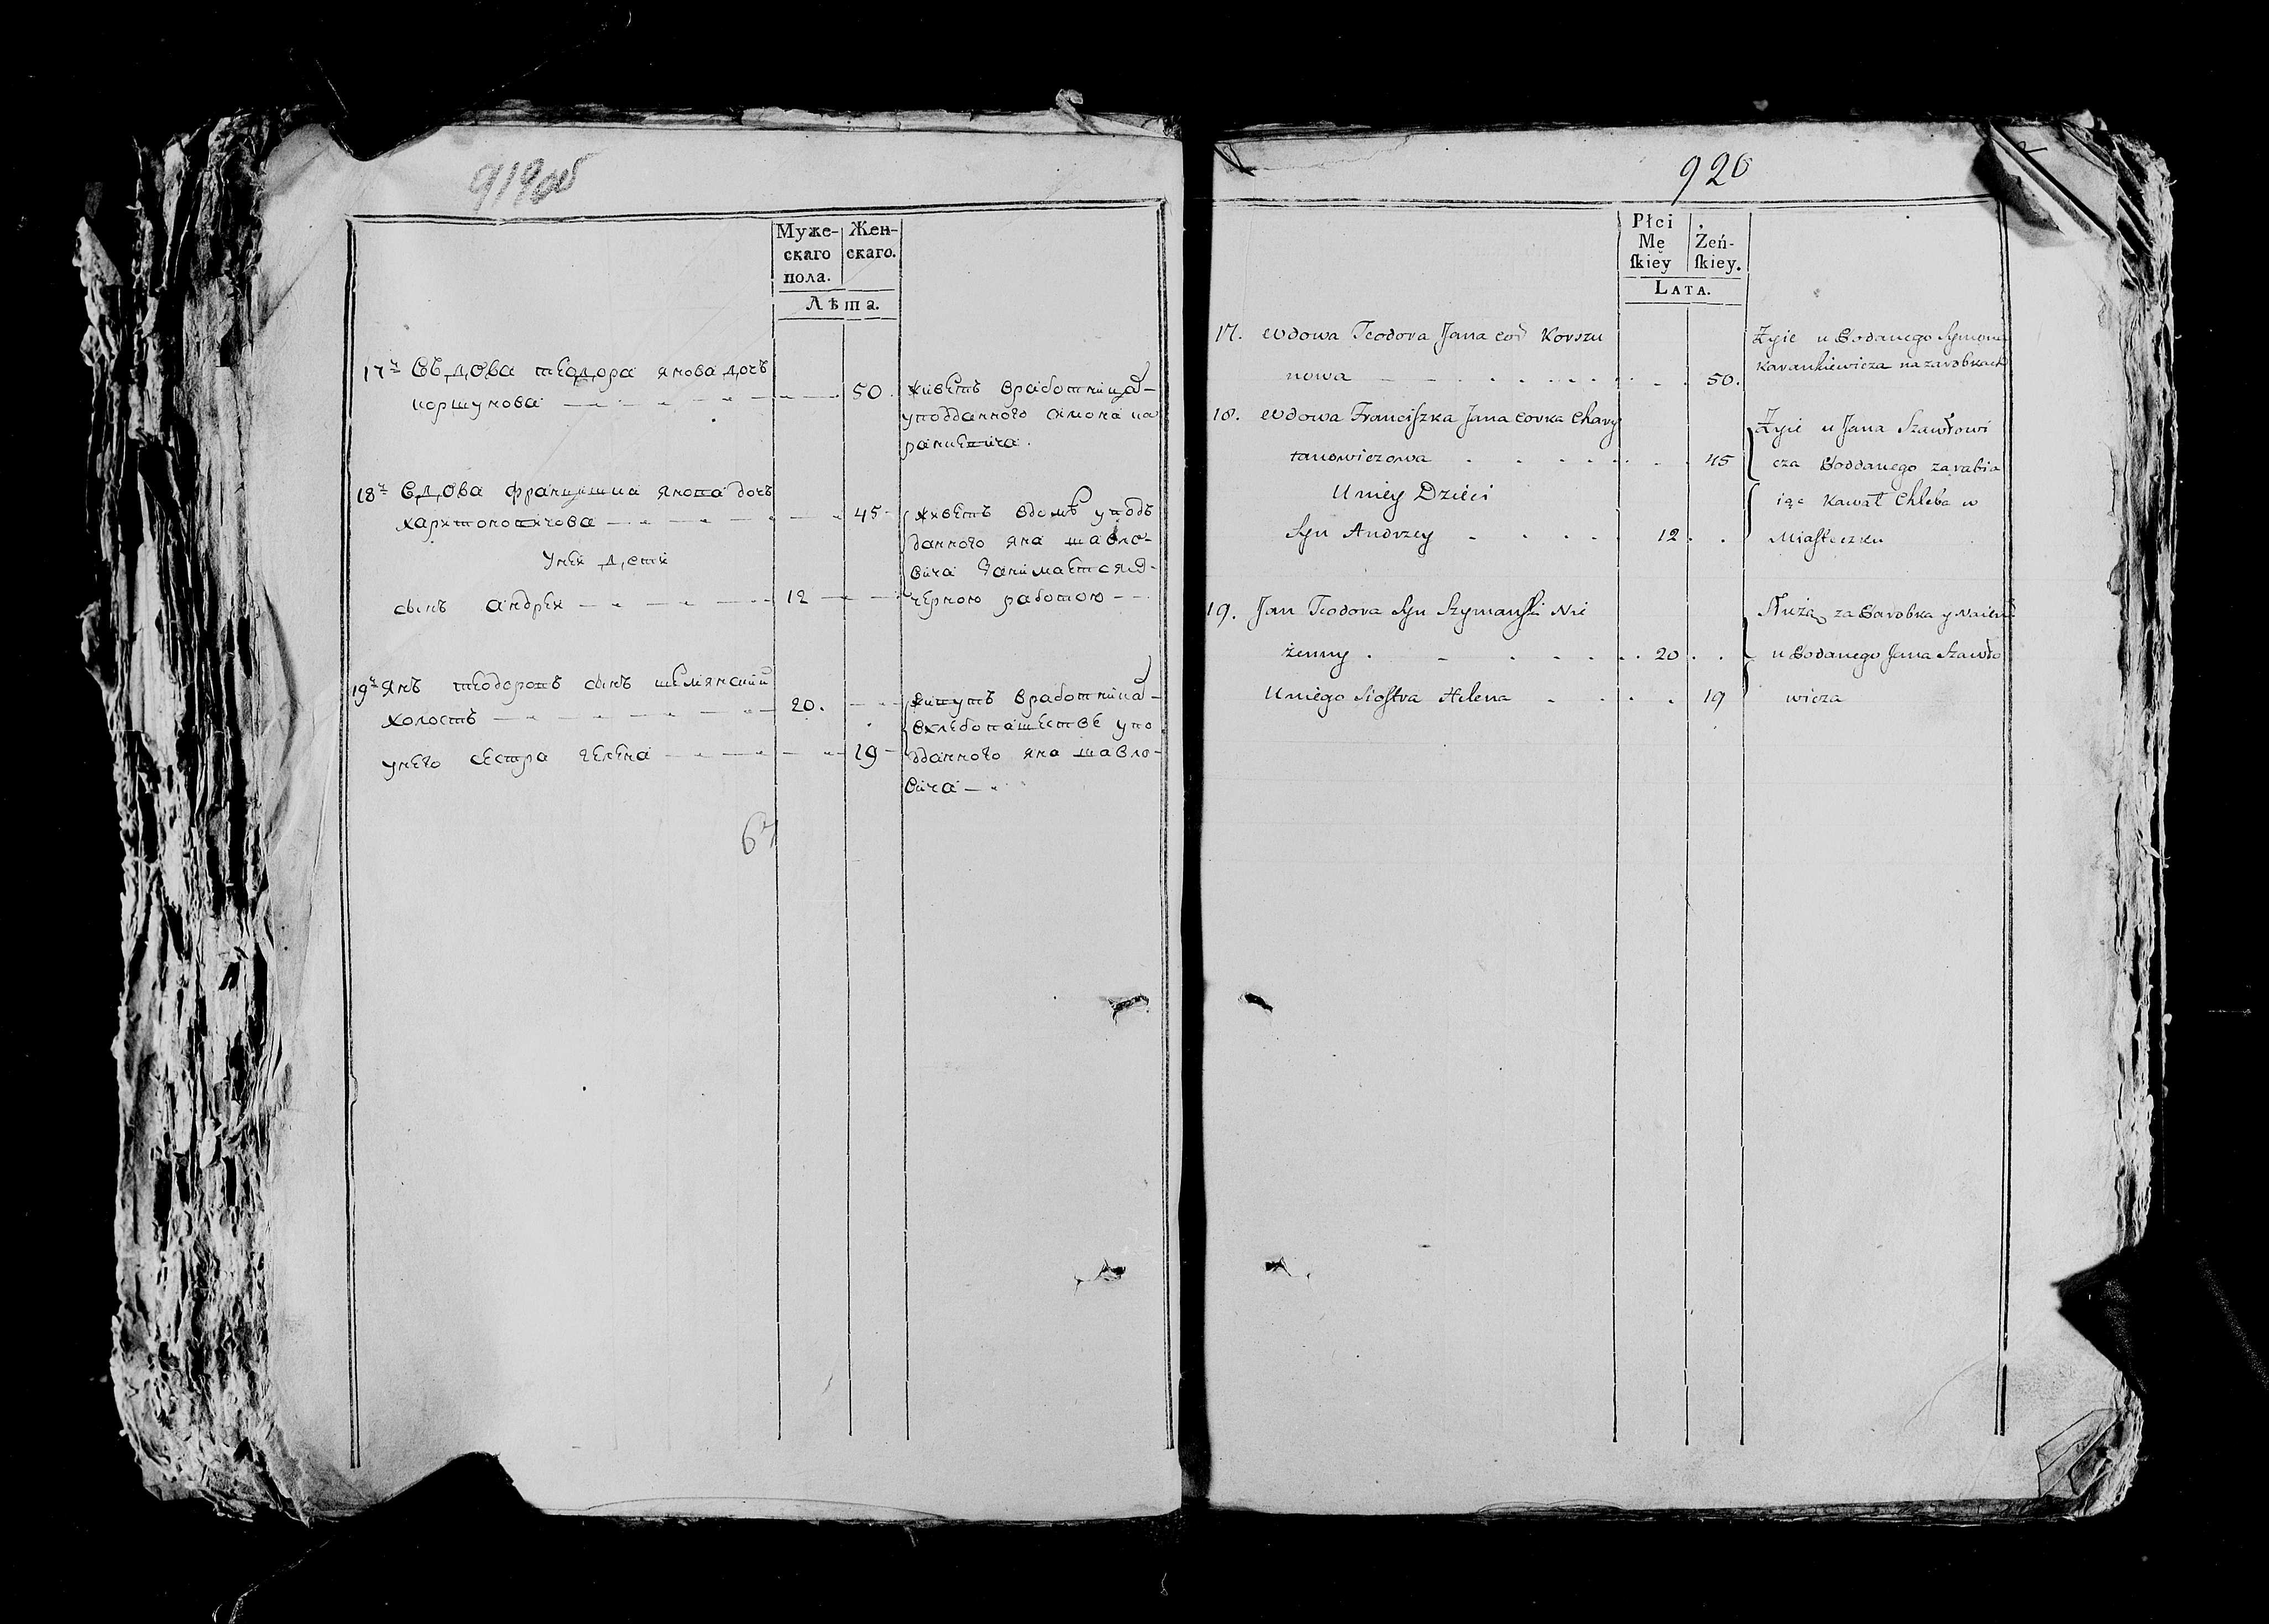 919об
Муже-
скаго
пола.
Жен-
скаго.
Лѣта.
17й Въдова теодора янова дочъ
коршунова
50
живетъ вработницах
уподданного симона ка
ранкевича.
18й вдова францишка янова дочъ
харитоновичова
45
живетъ вдомѣ уподъ
данного яна шавло-
вича занимается
черною работою
Унея дети
сынъ андрей
12
19й Янъ теодоровъ сынъ
холостъ
20.
живутъ вработниках
вхлебопашестве упо
дданного яна шавло-
вича
унего сестра гелена
19
67
920
Płci
Mę
ſkiey
Żeń-
ſkiey.
Lata.
17. wdowa Teodora Jana cor Korszu
nowa
50.
Żyie u Poddanego Symona
Karankiewicza na zarobkach
18. wdowa Franciſzka Jana corka Chary
tanowiczowa
45
Żyie u Jana Szawłowi
cza Poddanego zarabia
iąc Kawał Chleba w
Miaſteczku
U niey Dzieci
Syn Andrzey
12
19. Jan Teodora Syn Szymanſki Nie
żenny
20
Służą za Parobka y
u Poddanego Jana Szawło
wicza
U niego Sioſtra Helena
19